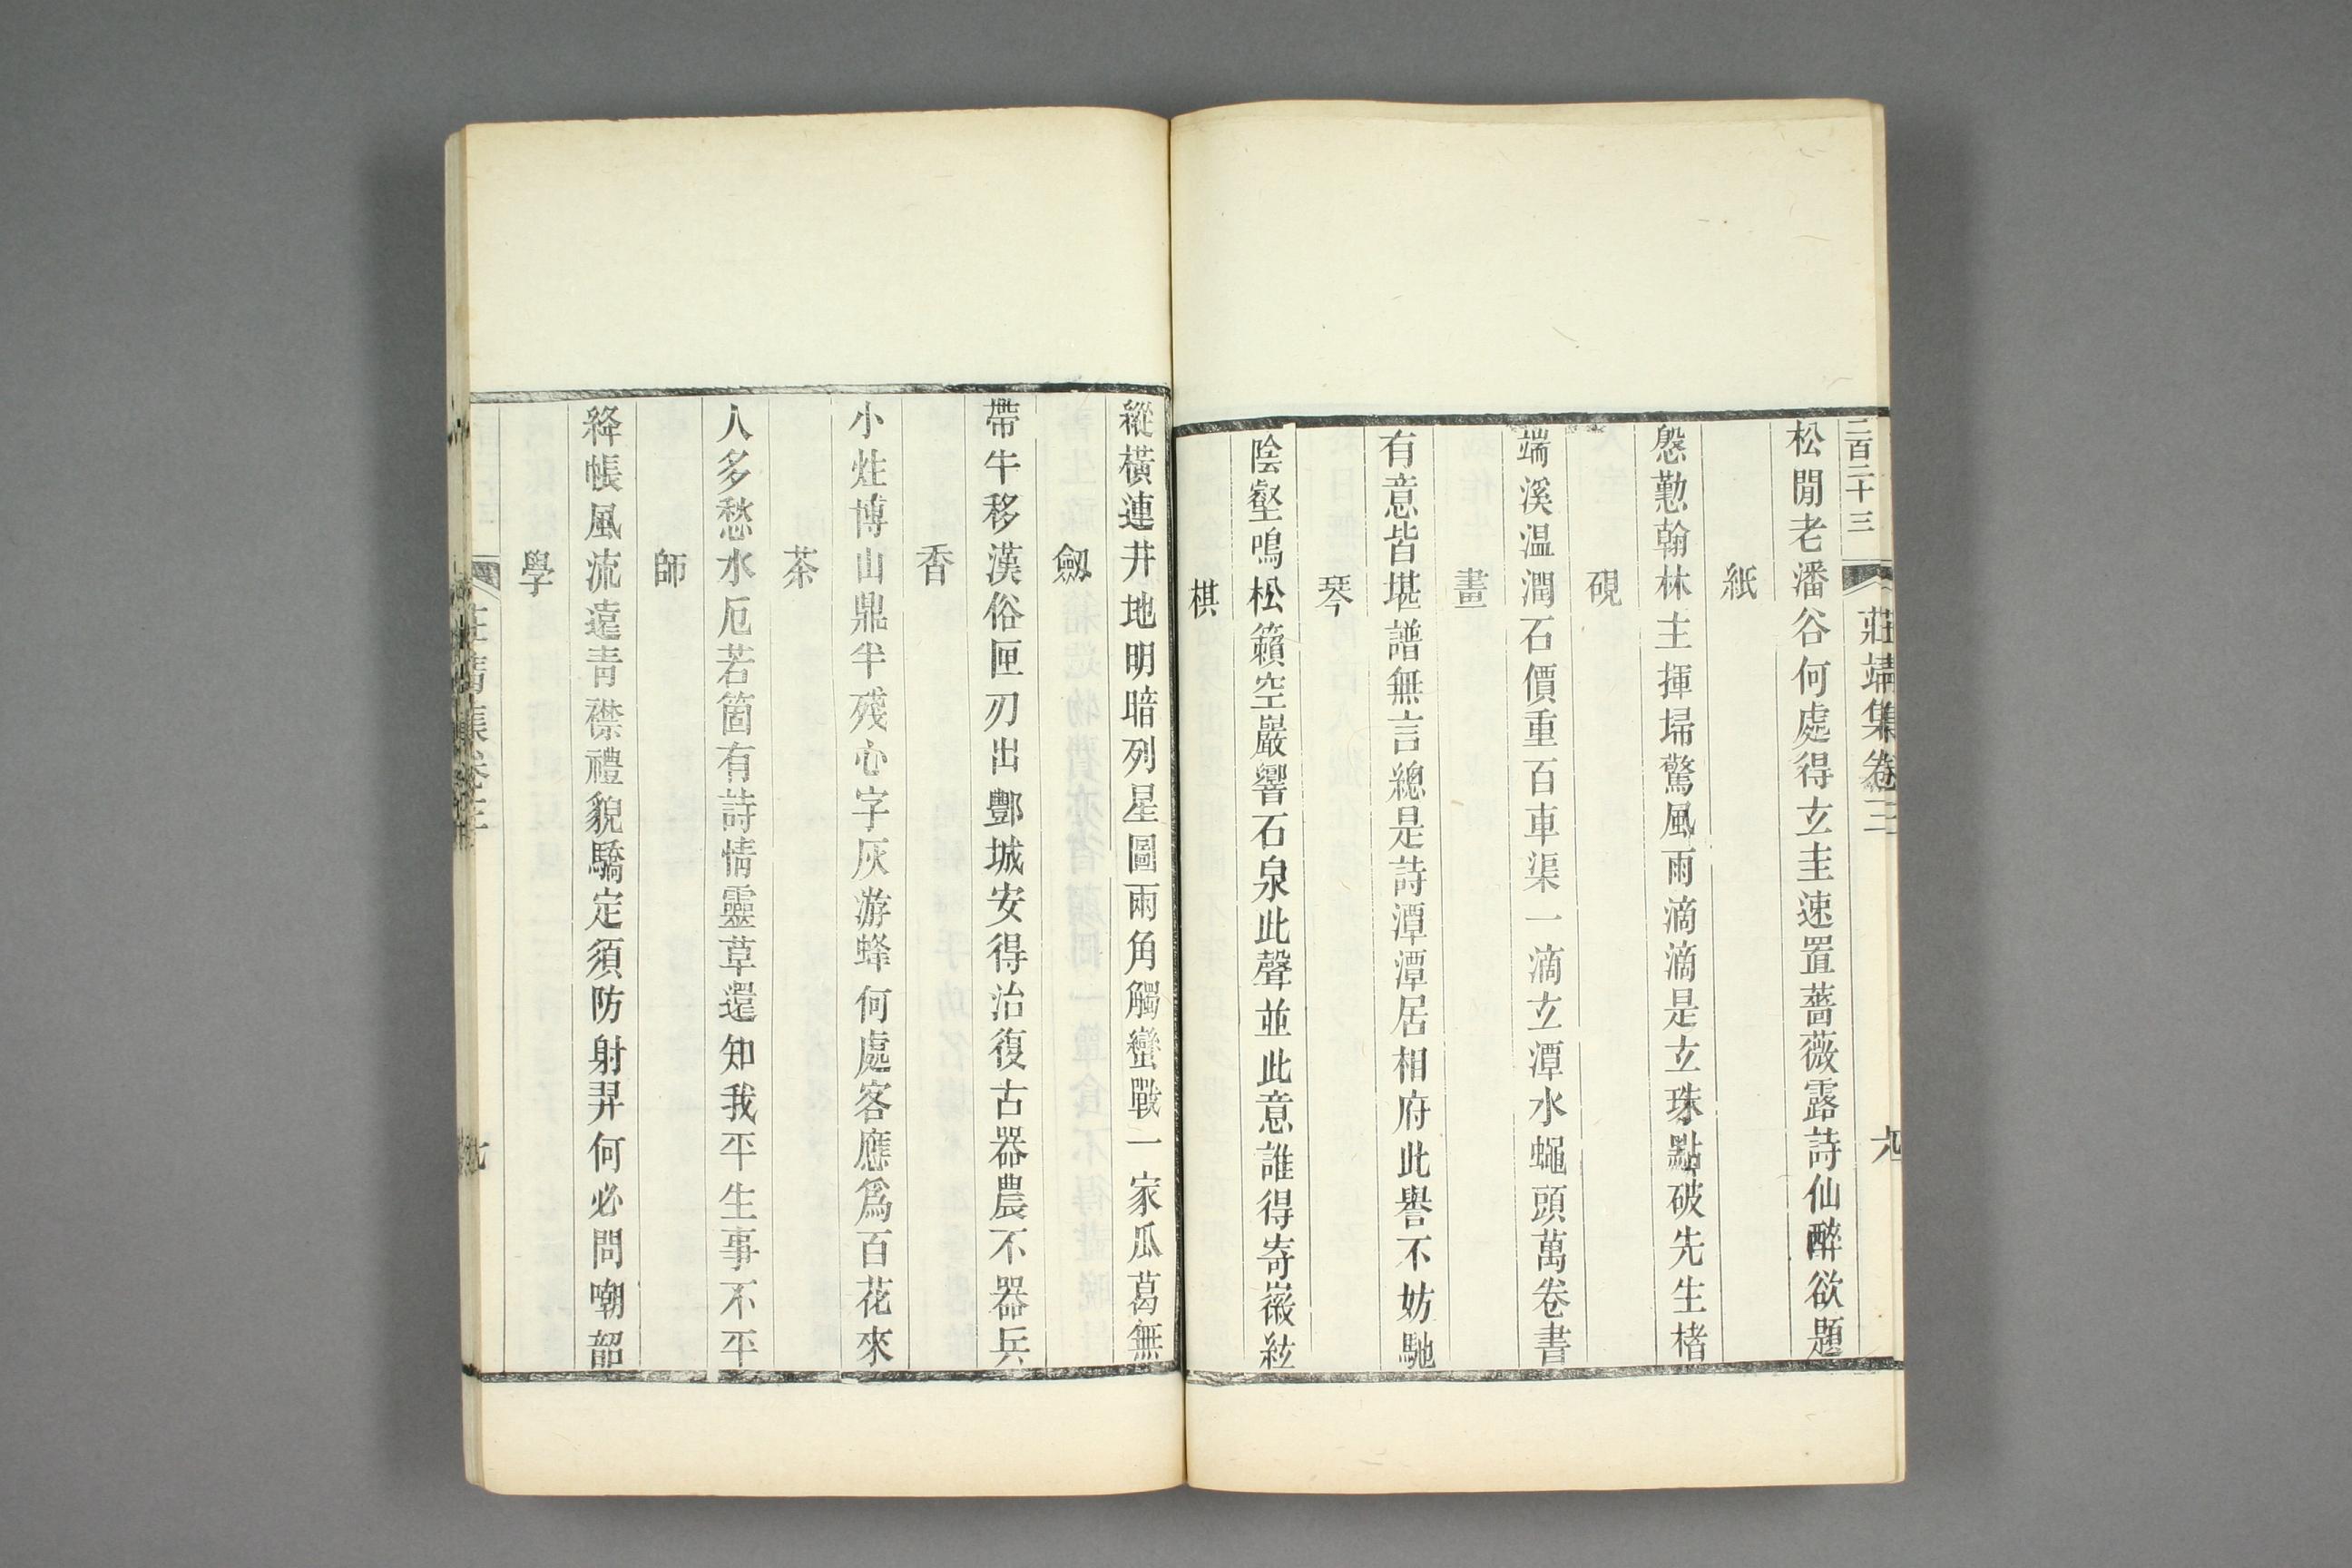 二百二十三
莊靖集卷三
九
松閒老潘谷何處得玄圭速置薔薇露詩仙醉欲題
紙
慇懃翰林主揮埽驚風雨滴滴是玄珠點破先生楮
硯
端溪温潤石價重百車渠一滴玄潭水蠅頭萬卷書
畫
有意皆堪譜無言總是詩潭潭居相府此譽不妨馳
琴
陰壑鳴松籟空巖響石泉此聲並此意誰得寄徽絃
棋
縱橫連井地明暗列星圖兩角觸蠻戰一家瓜葛無
劔
帶牛移漢俗匣刃出酆城安得治復古器農不器兵
香
小炷博山鼎半殘心字灰游蜂何處客應爲百花來
茶
人多愁水厄若箇有詩情靈草還知我平生事不平
師
絳帳風流遠青襟禮貌驕定須防射羿何必問嘲韶
學